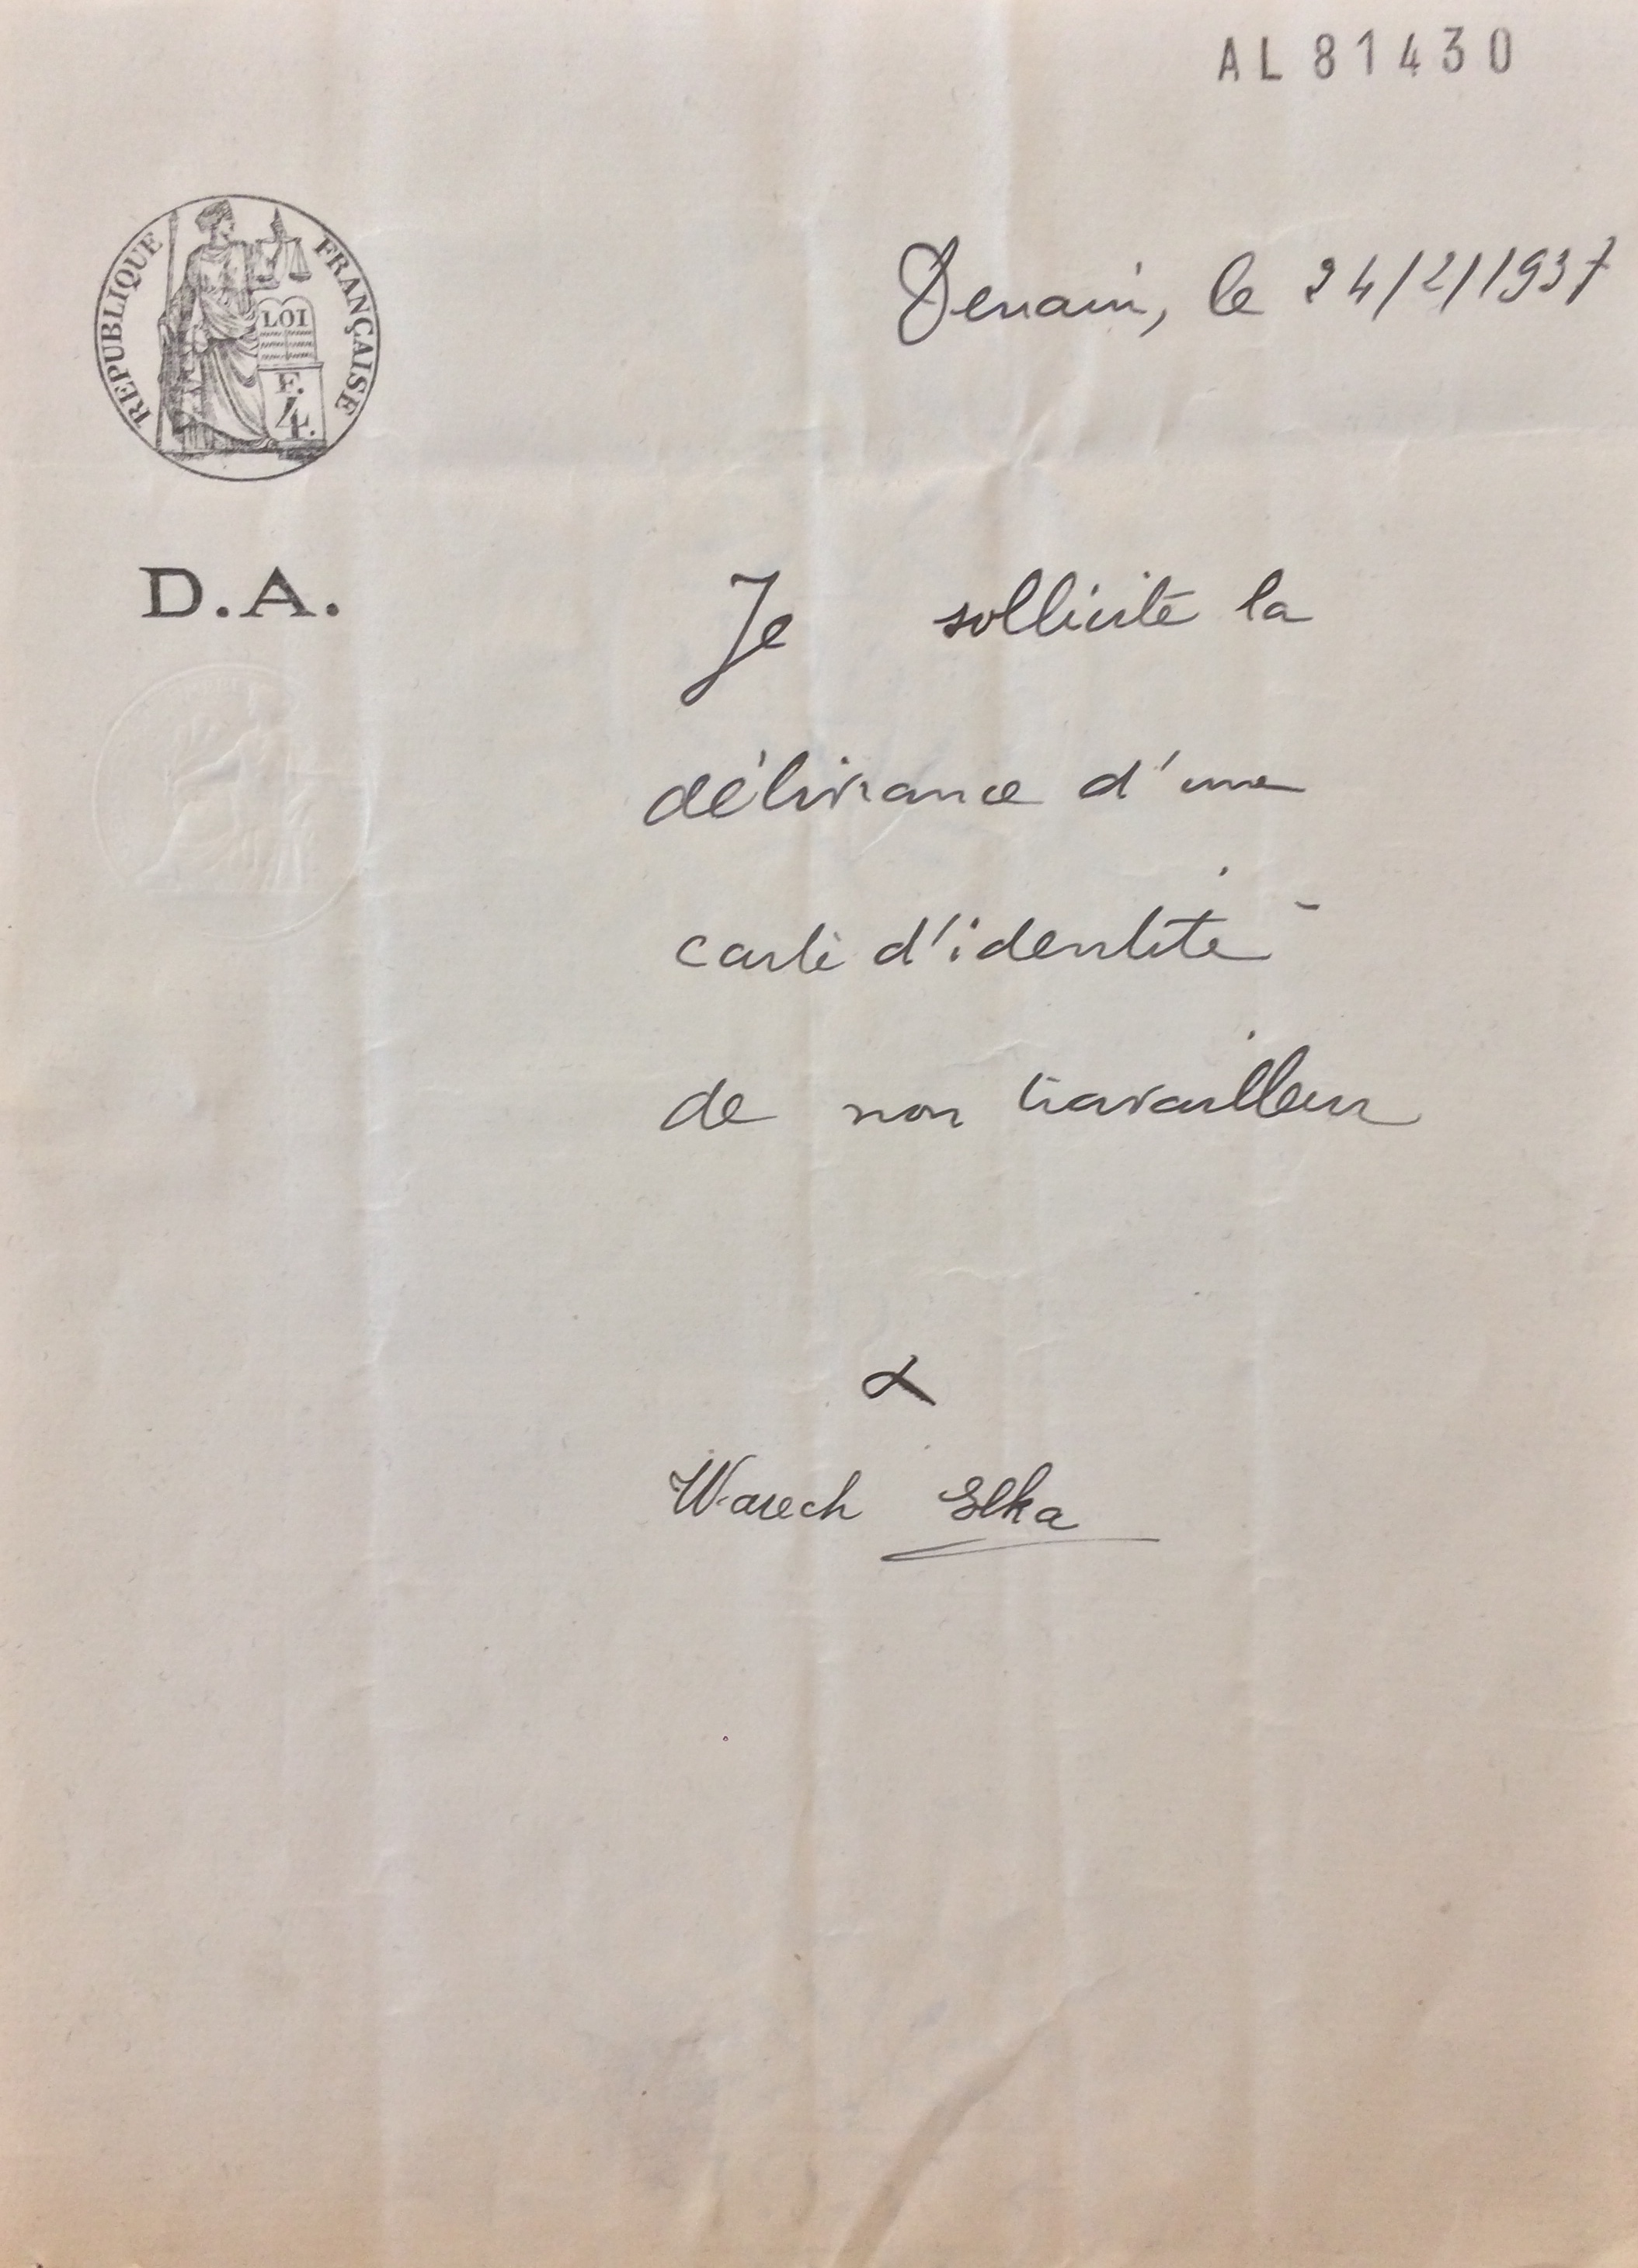 AL 81430
REPUBLIQUE FRANÇAISE
LOI
F.
4.
Denain, le 24/2/1937
D.A.
Je sollicite la
délivrance d'une
carte d'identité
de non travailleur
Warech Elka